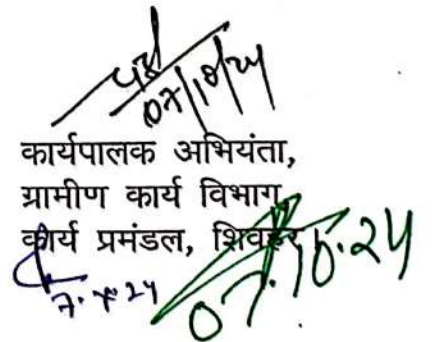 07/10/24
कार्यपालक अभियंता,
ग्रामीण कार्य विभाग,
कार्य प्रमंडल, शिवहर।
07.10.24